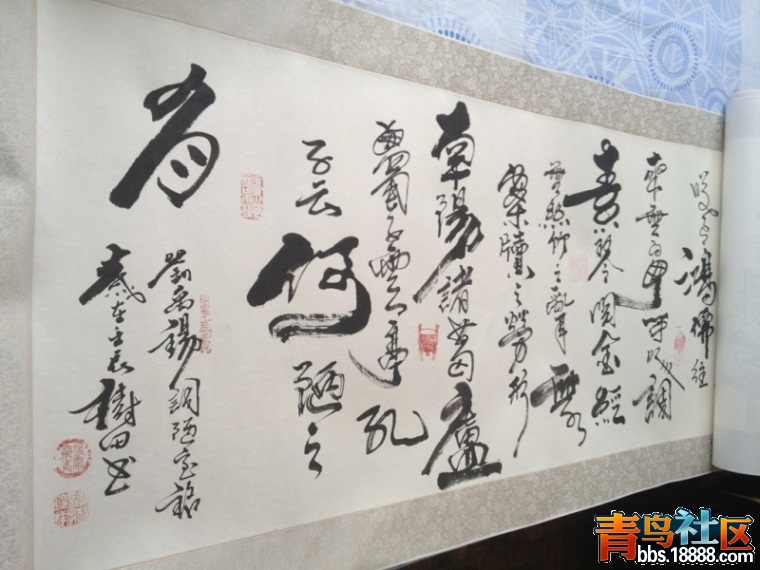 笑有鴻儒往
來無白丁可以調
素琴閱金經
無絲竹之亂耳無
案牘之勞形
南陽諸葛廬
西蜀子雲亭孔
子云何陋之
有
劉禹錫詞陋室銘
歲在壬辰樹田书
青鸟社区
bbs.18888.com